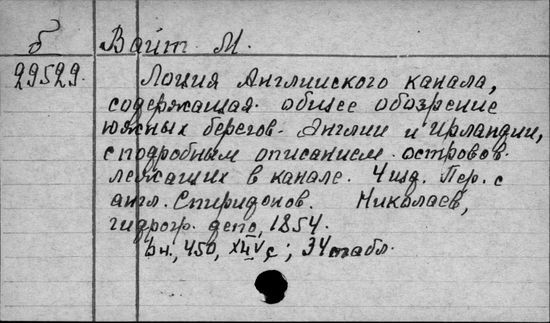 б Вайт М.
29529. Лоция Английского канала,
содержащая общее обозрение
южных берегов Англии и Ирландии,
с подробным описанием островов
лежащих в канале. 4 изд. Пер. с
англ. Спиридонов. Николаев,
гидрогр. депо, 1854.
450, с; 34 табл.